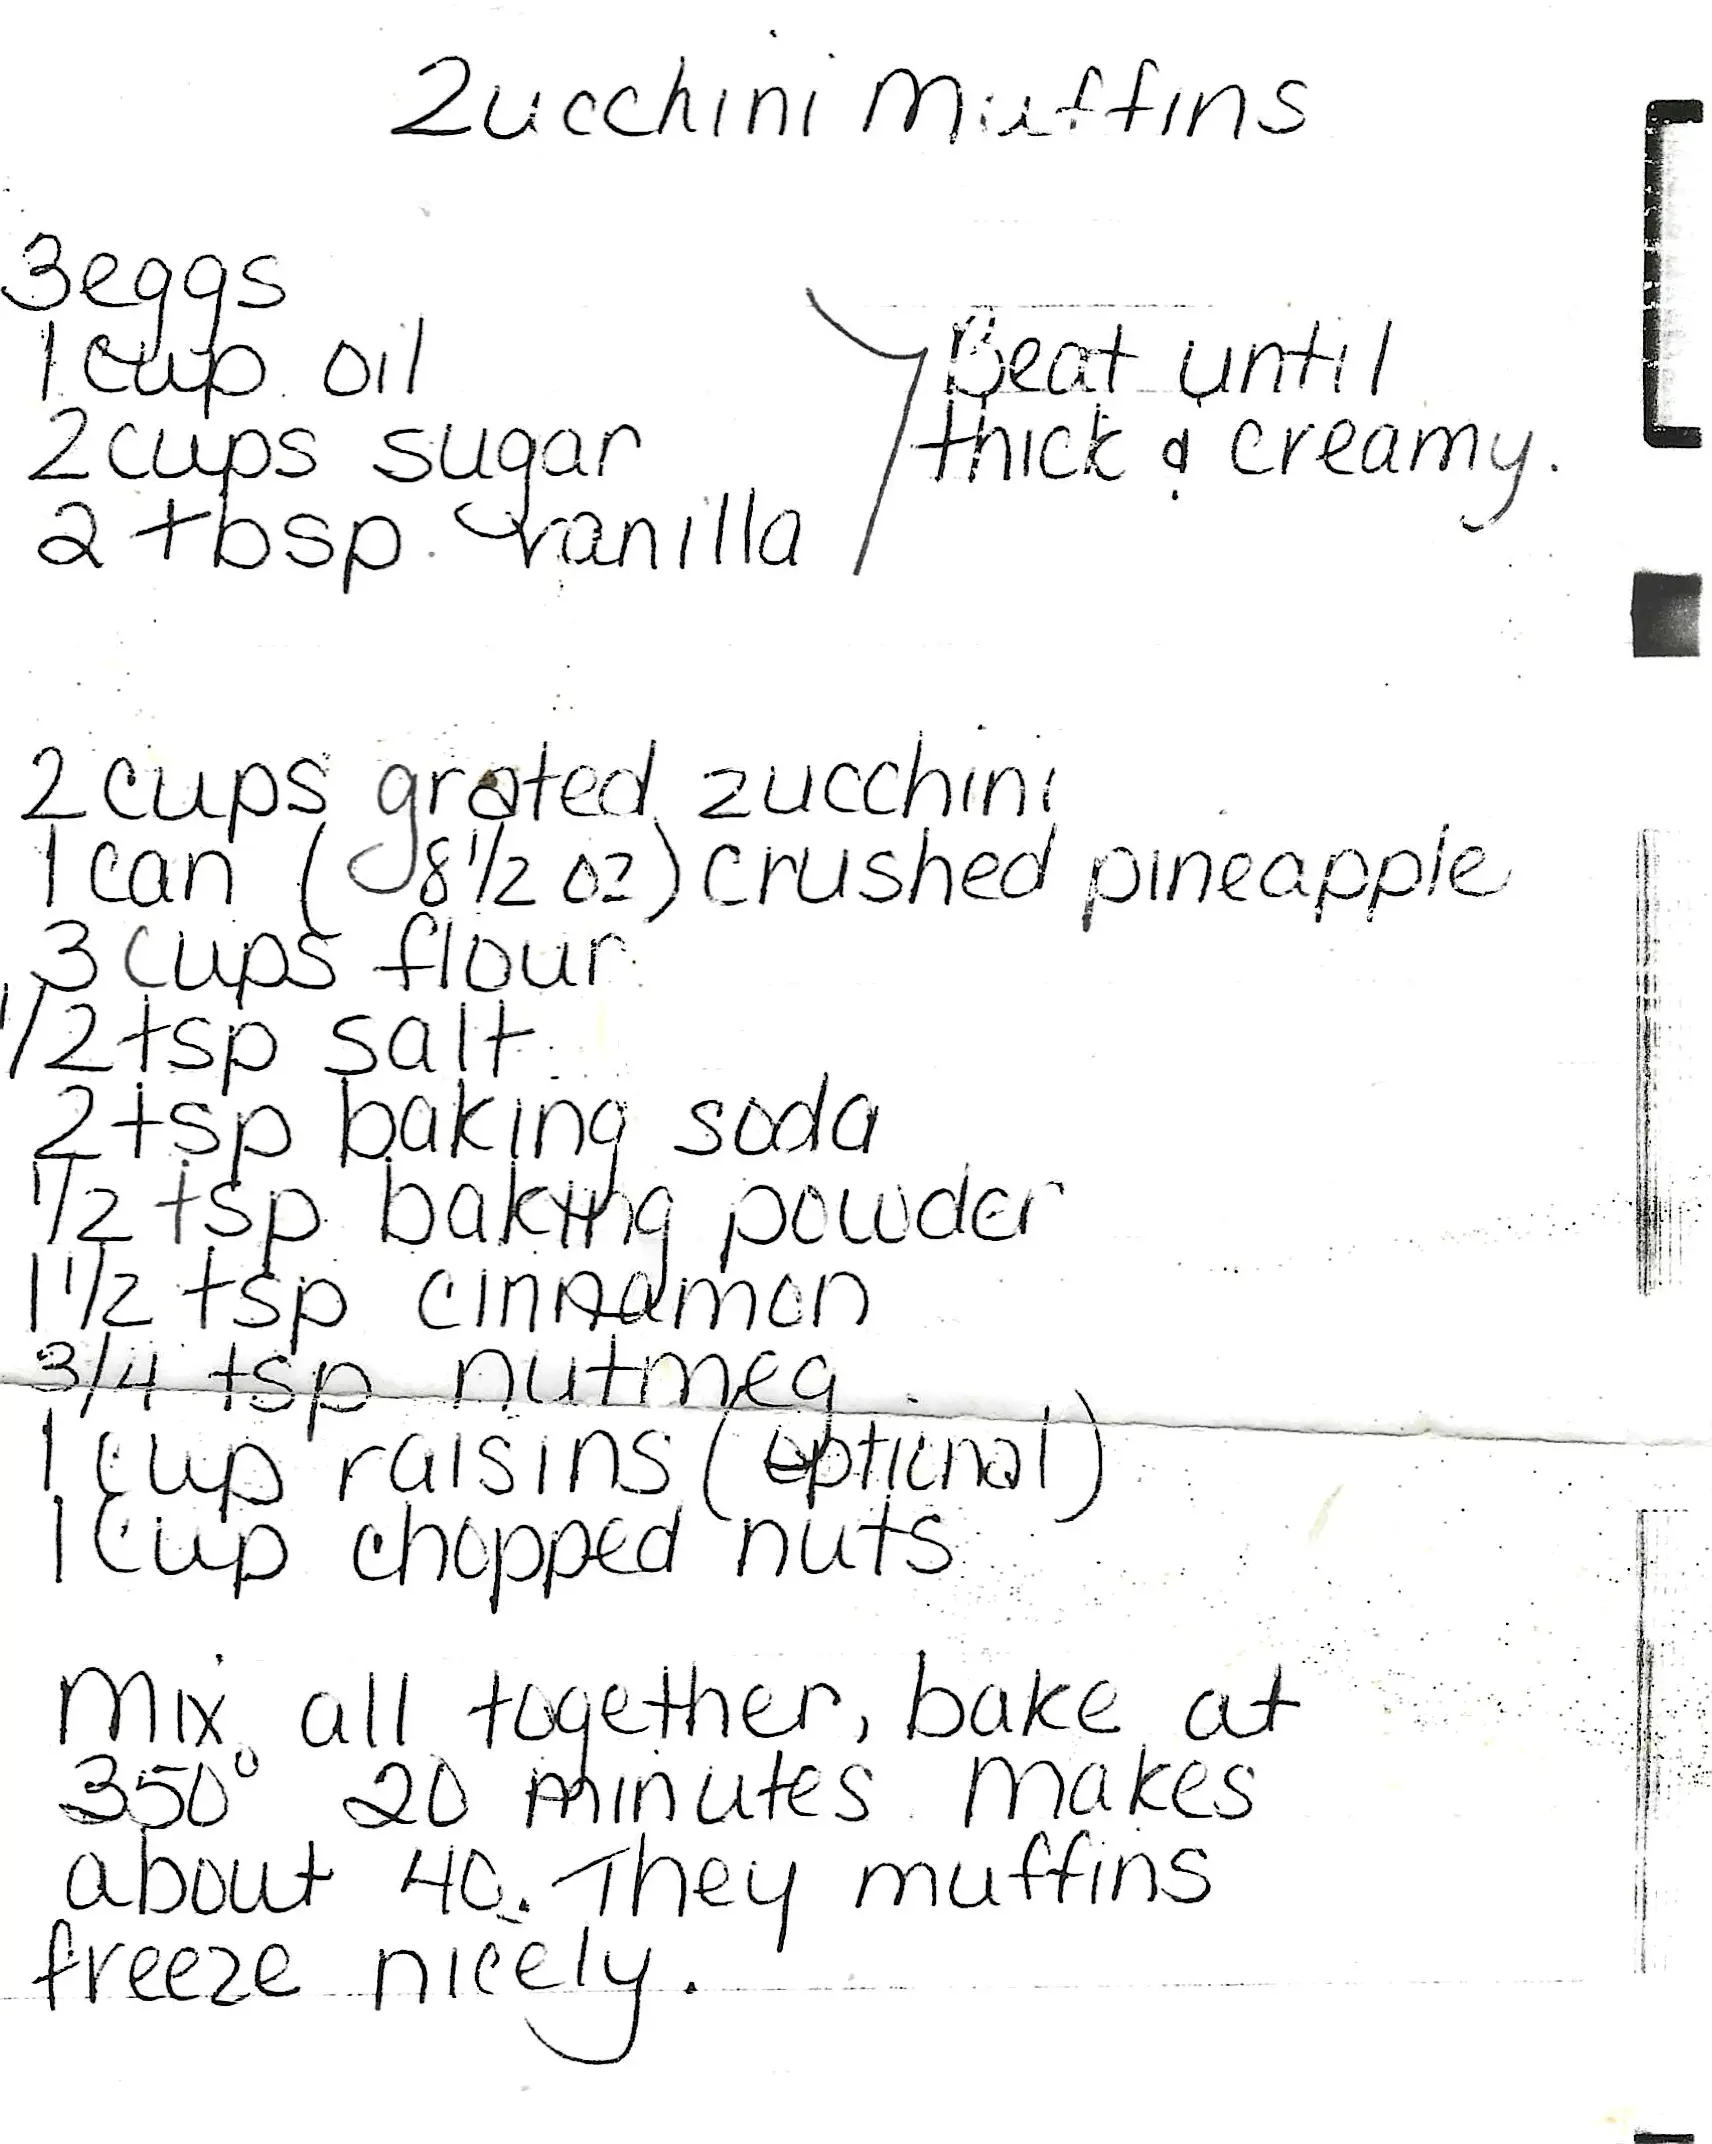 Zucchini Muffins
3 eggs
1 cup oil
2 cups sugar
2 tbsp. vanilla
Beat until
thick & creamy.
2 cups grated zucchini
1 can (8 1/2 oz) crushed pineapple
3 cups flour
1/2 tsp salt
2 tsp baking soda
1/2 tsp baking powder
1 1/2 tsp cinnamon
3/4 tsp nutmeg
1 cup raisins (optional)
1 cup chopped nuts
Mix all together, bake at
350° 20 minutes. Makes
about 40. They muffins
freeze nicely.